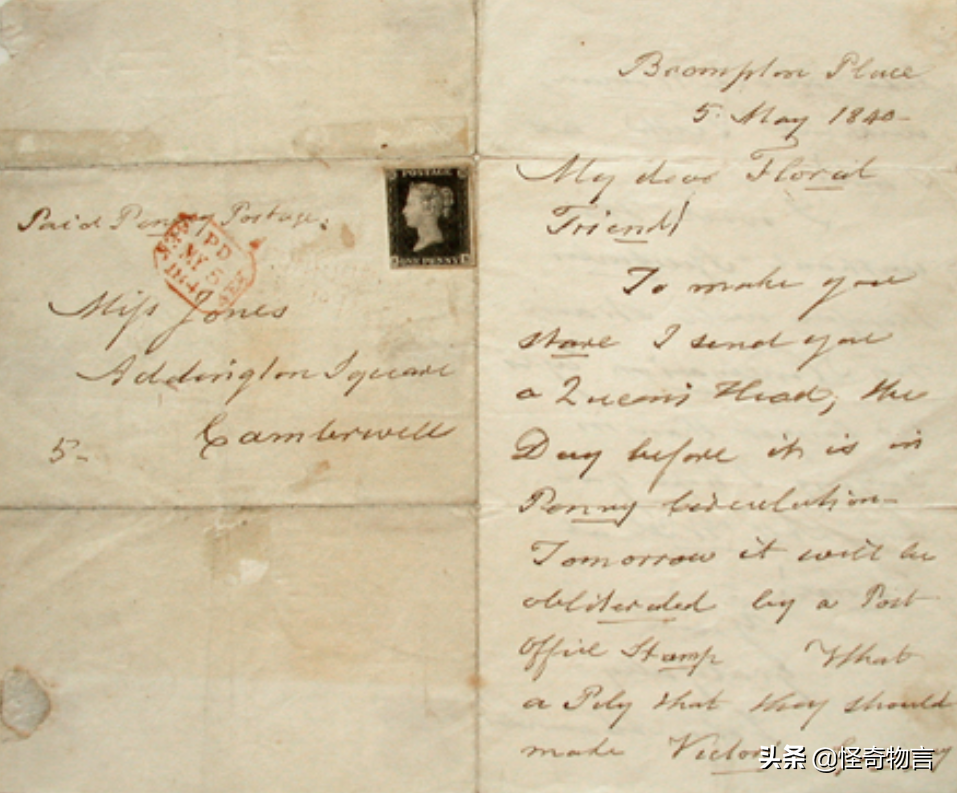 POSTAGE
ONE PENNY
Paid Penny Postage.
PD
MY 5
1840
Miss Jones
Addington Square
Camberwell
5-
Brompton Place
5 May 1840-
My dear Florial
Friend!
To make you
stare I send you
a Queen's Head, the
Day before it is in
Penny Circulation-
Tomorrow it will be
obliterated by a Post
Office Stamp What
a Pity that they should
make
头条 @怪奇物言